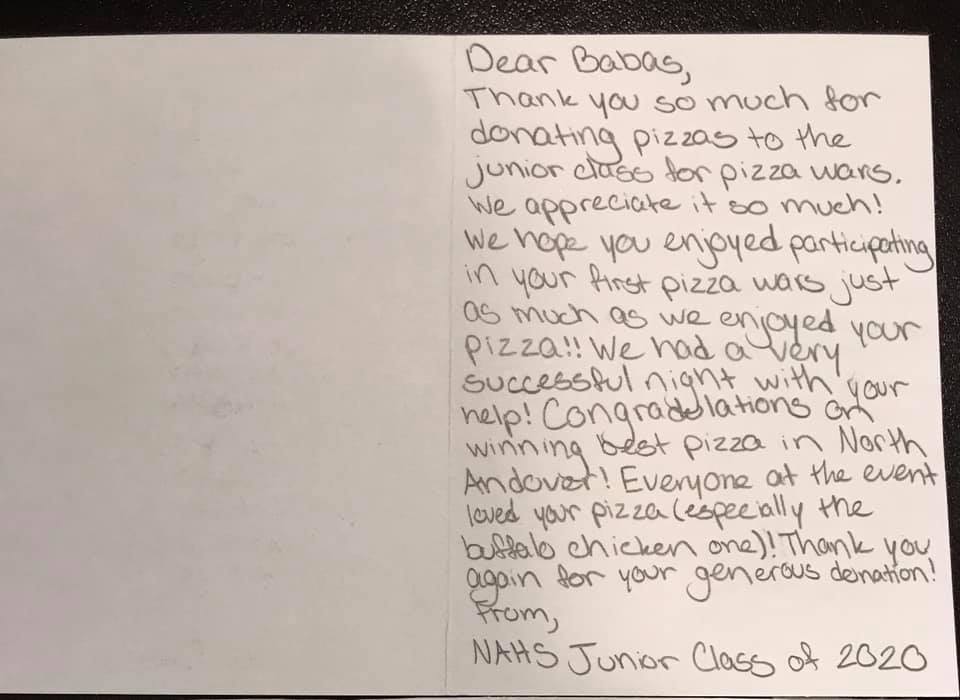 Dear Babas,
Thank you so much for
donating pizzas to the
junior class for pizza wars.
We appreciate it so much!
We hope you enjoyed participating
in your first pizza wars just
as much as we enjoyed your
pizza!! We had a very
successful night with your
help! Congradulations on
winning best pizza in North
Andover! Everyone at the event
loved your pizza (especially the
buffalo chicken one)! Thank you
again for your generous donation!
From,
NAHS Junior Class of 2020